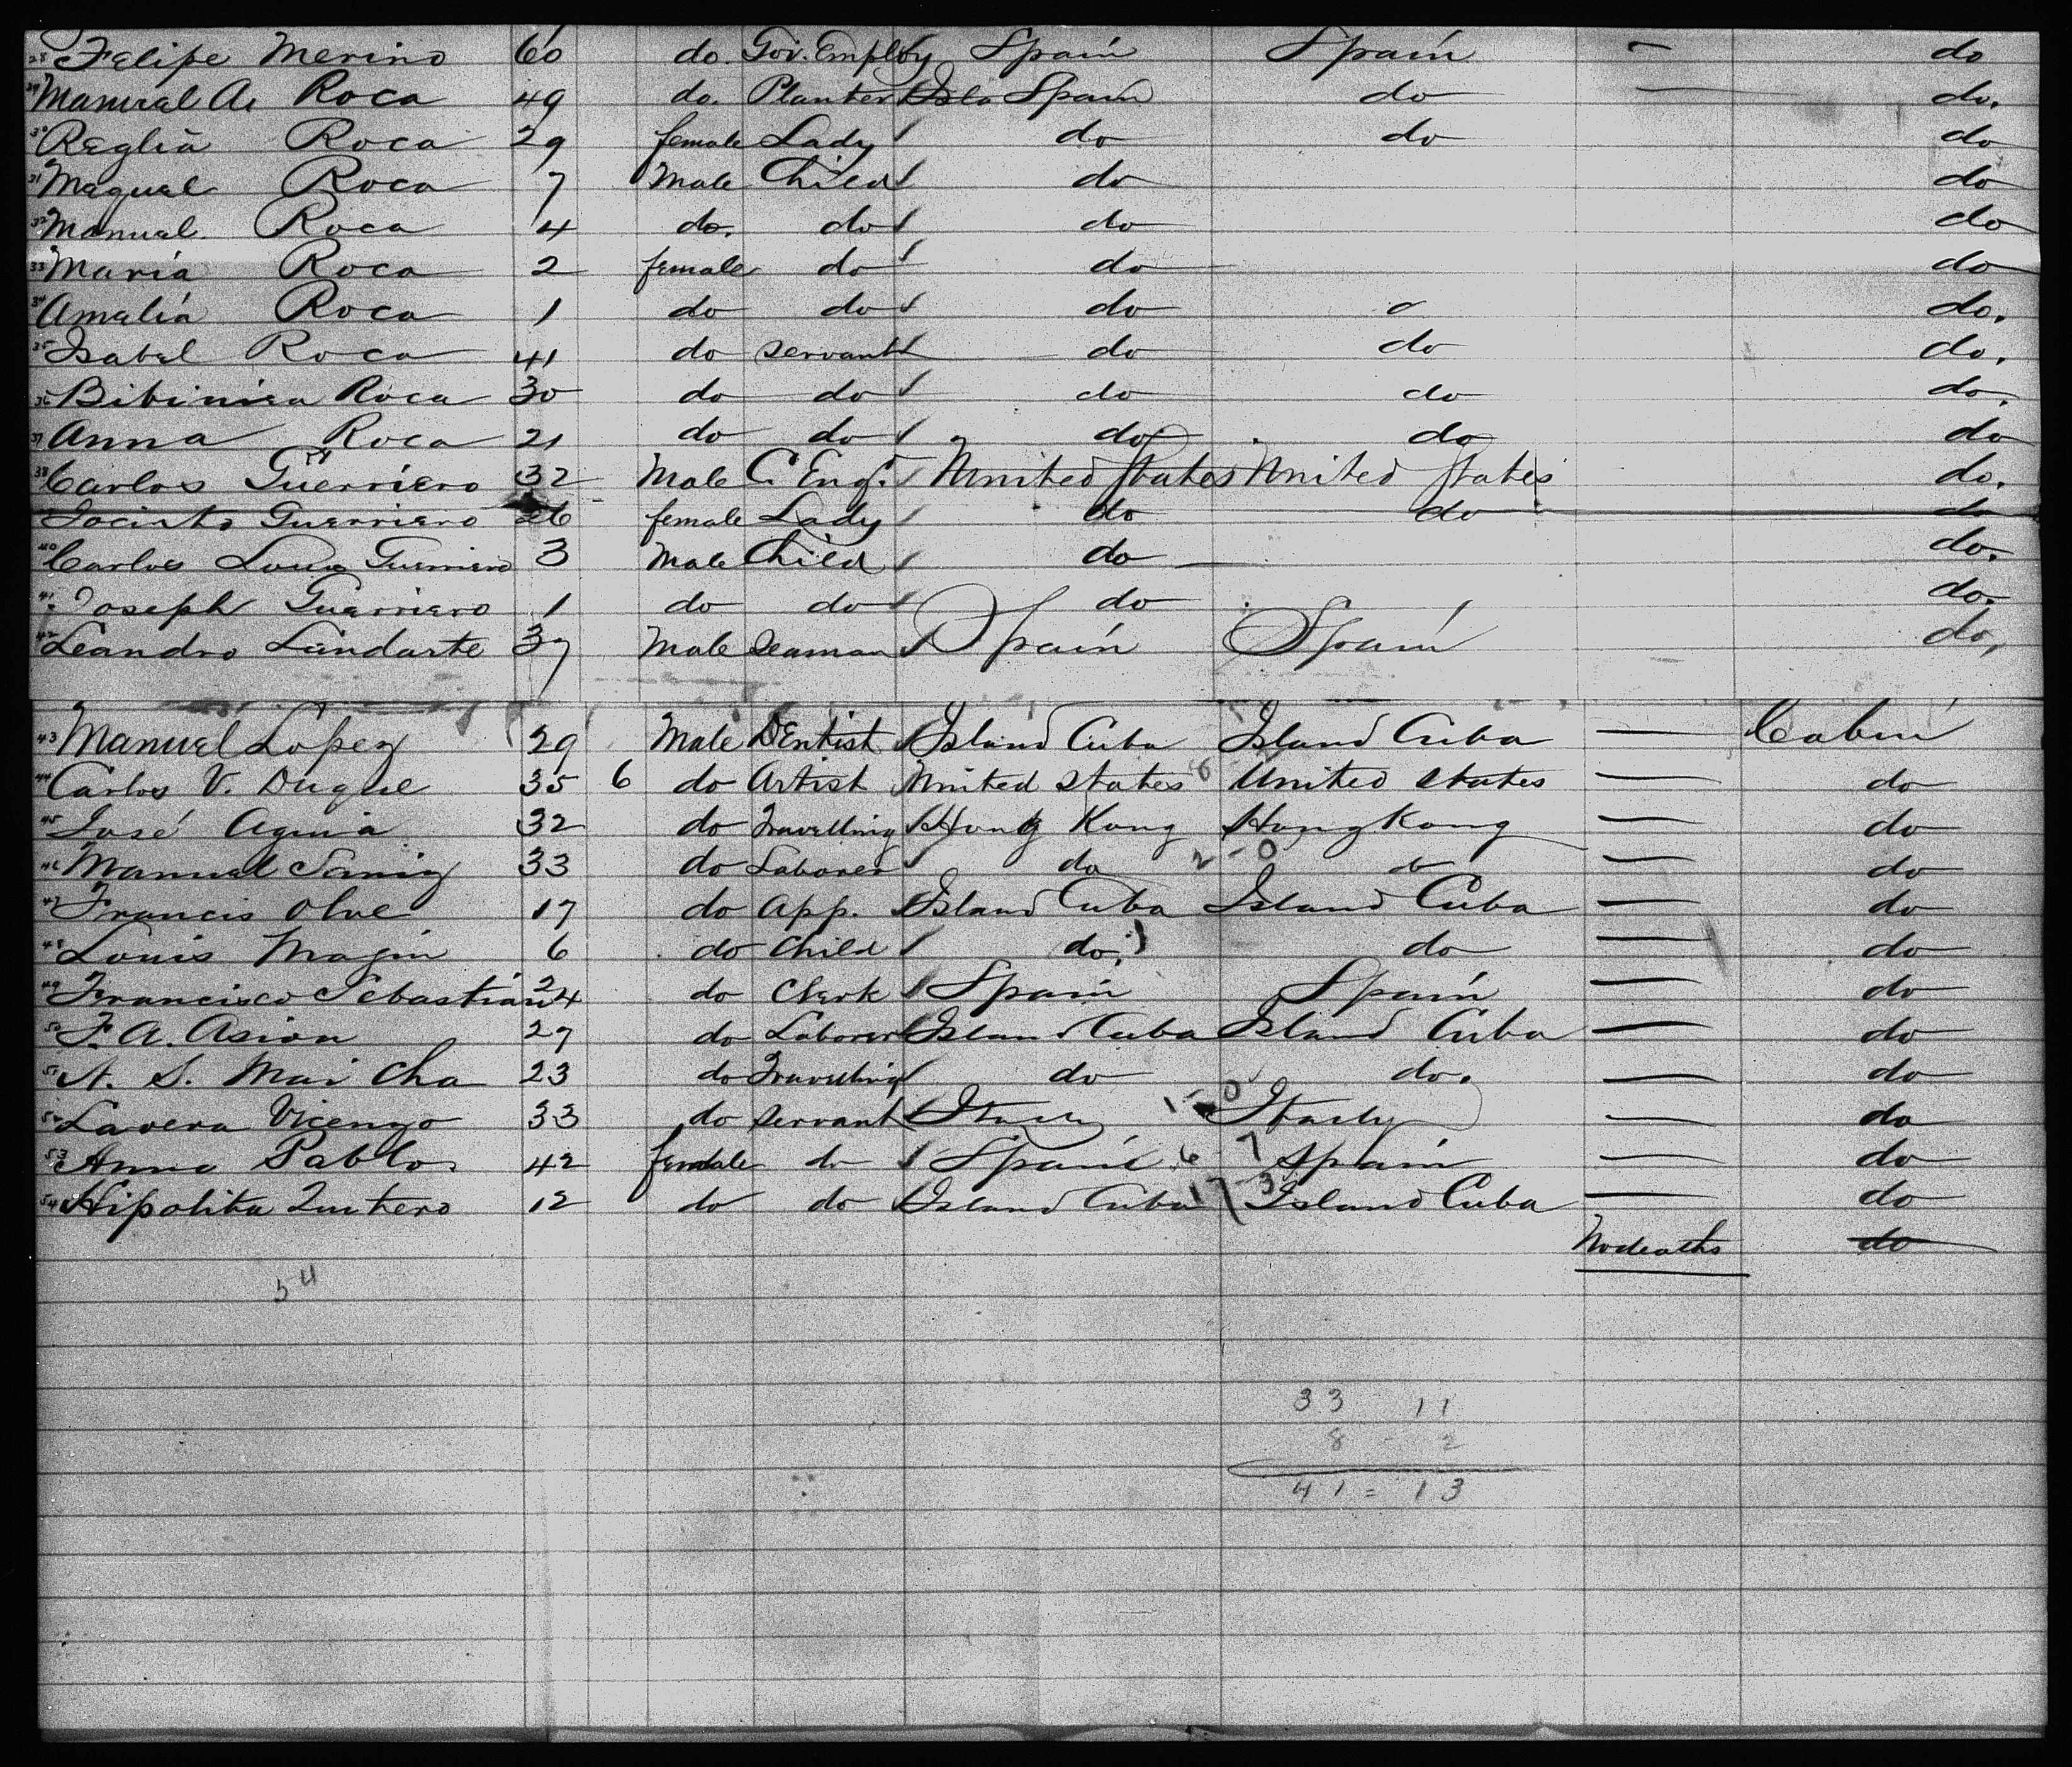 28 Felipe Merino 60 do. Gov. Employ Spain Spain — do
29 Manual A. Roca 49 do. Planter Spain do — do.
30 Reglia Roca 29 female Lady do do do
31 Maqual Roca 7 Male Child do do
32 Manual Roca 4 do. do do do
33 Maria Roca 2 female do do do
34 Amalia Roca 1 do do do do.
35 Isabel Roca 41 do servant do do do.
36 Roca 30 do do do do do.
37 Anna Roca 21 do do do do do
38 Carlos Guerriero 32 Male C. Eng. United States United States do.
Jacinto Guerriero 26 female Lady do do do
40 Carlos Guerriero 3 Male Child do do.
41 Joseph Guerriero 1 do do do do.
42 Leandro Landarte 37 Male Seaman Spain Spain do,
43 Manuel Lopez 29 Male Dentist Island Cuba Island Cuba — Cabin
44 Carlos V. Duque 35 6 do Artist United States United States — do
45 José Aguia 32 do Travelling Hong Kong Hong Kong — do
46 Manual 33 do Laborer do 2 - 0 do — do
47 Francis Olve 17 do App. Island Cuba Island Cuba — do
48 Louis Magin 6 do Child do. do — do
49 Francisco Sebastián 24 do Clerk Spain Spain — do
50 F. A. Asion 27 do Laborer Island Cuba Island Cuba — do
51 A. S. Mai Cha 23 do Travelling do do. — do
52 Lavera Vicenzo 33 do servant Italy 1 - 0 Italy — do
53 Anna Pablo 42 female do Spain 6 - 7 Spain — do
54 Hipolita Quitero 12 do do Island Cuba 17 - 3 Island Cuba — do
No deaths do
54
33 11
8 - 2
41 = 13